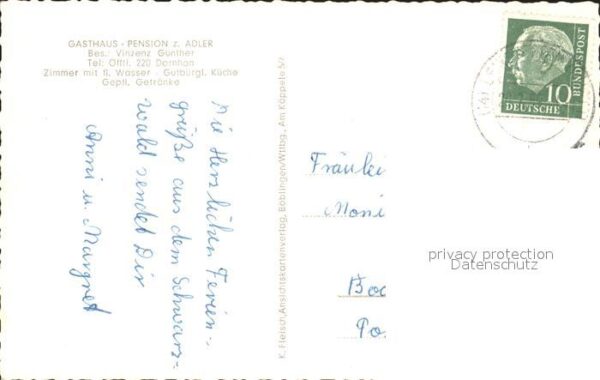 GASTHAUS - PENSION z. ADLER
Bes.: Vinzenz Günther
Tel: Öfftl. 220 Dornhan
Zimmer mit fl. Wasser - Gutbürgl. Küche
Gepfl. Getränke
Die Herzlichen Ferien-
grüße aus dem Schwarz-
wald sendet Dir
Anni u. Margret
K. Fleisch, Ansichtskartenverlag, Böblingen/Wttbg., Am Käppele 5/7
10
DEUTSCHE
BUNDESPOST
Fräulei
Moni
Boc
Po
privacy protection
Datenschutz